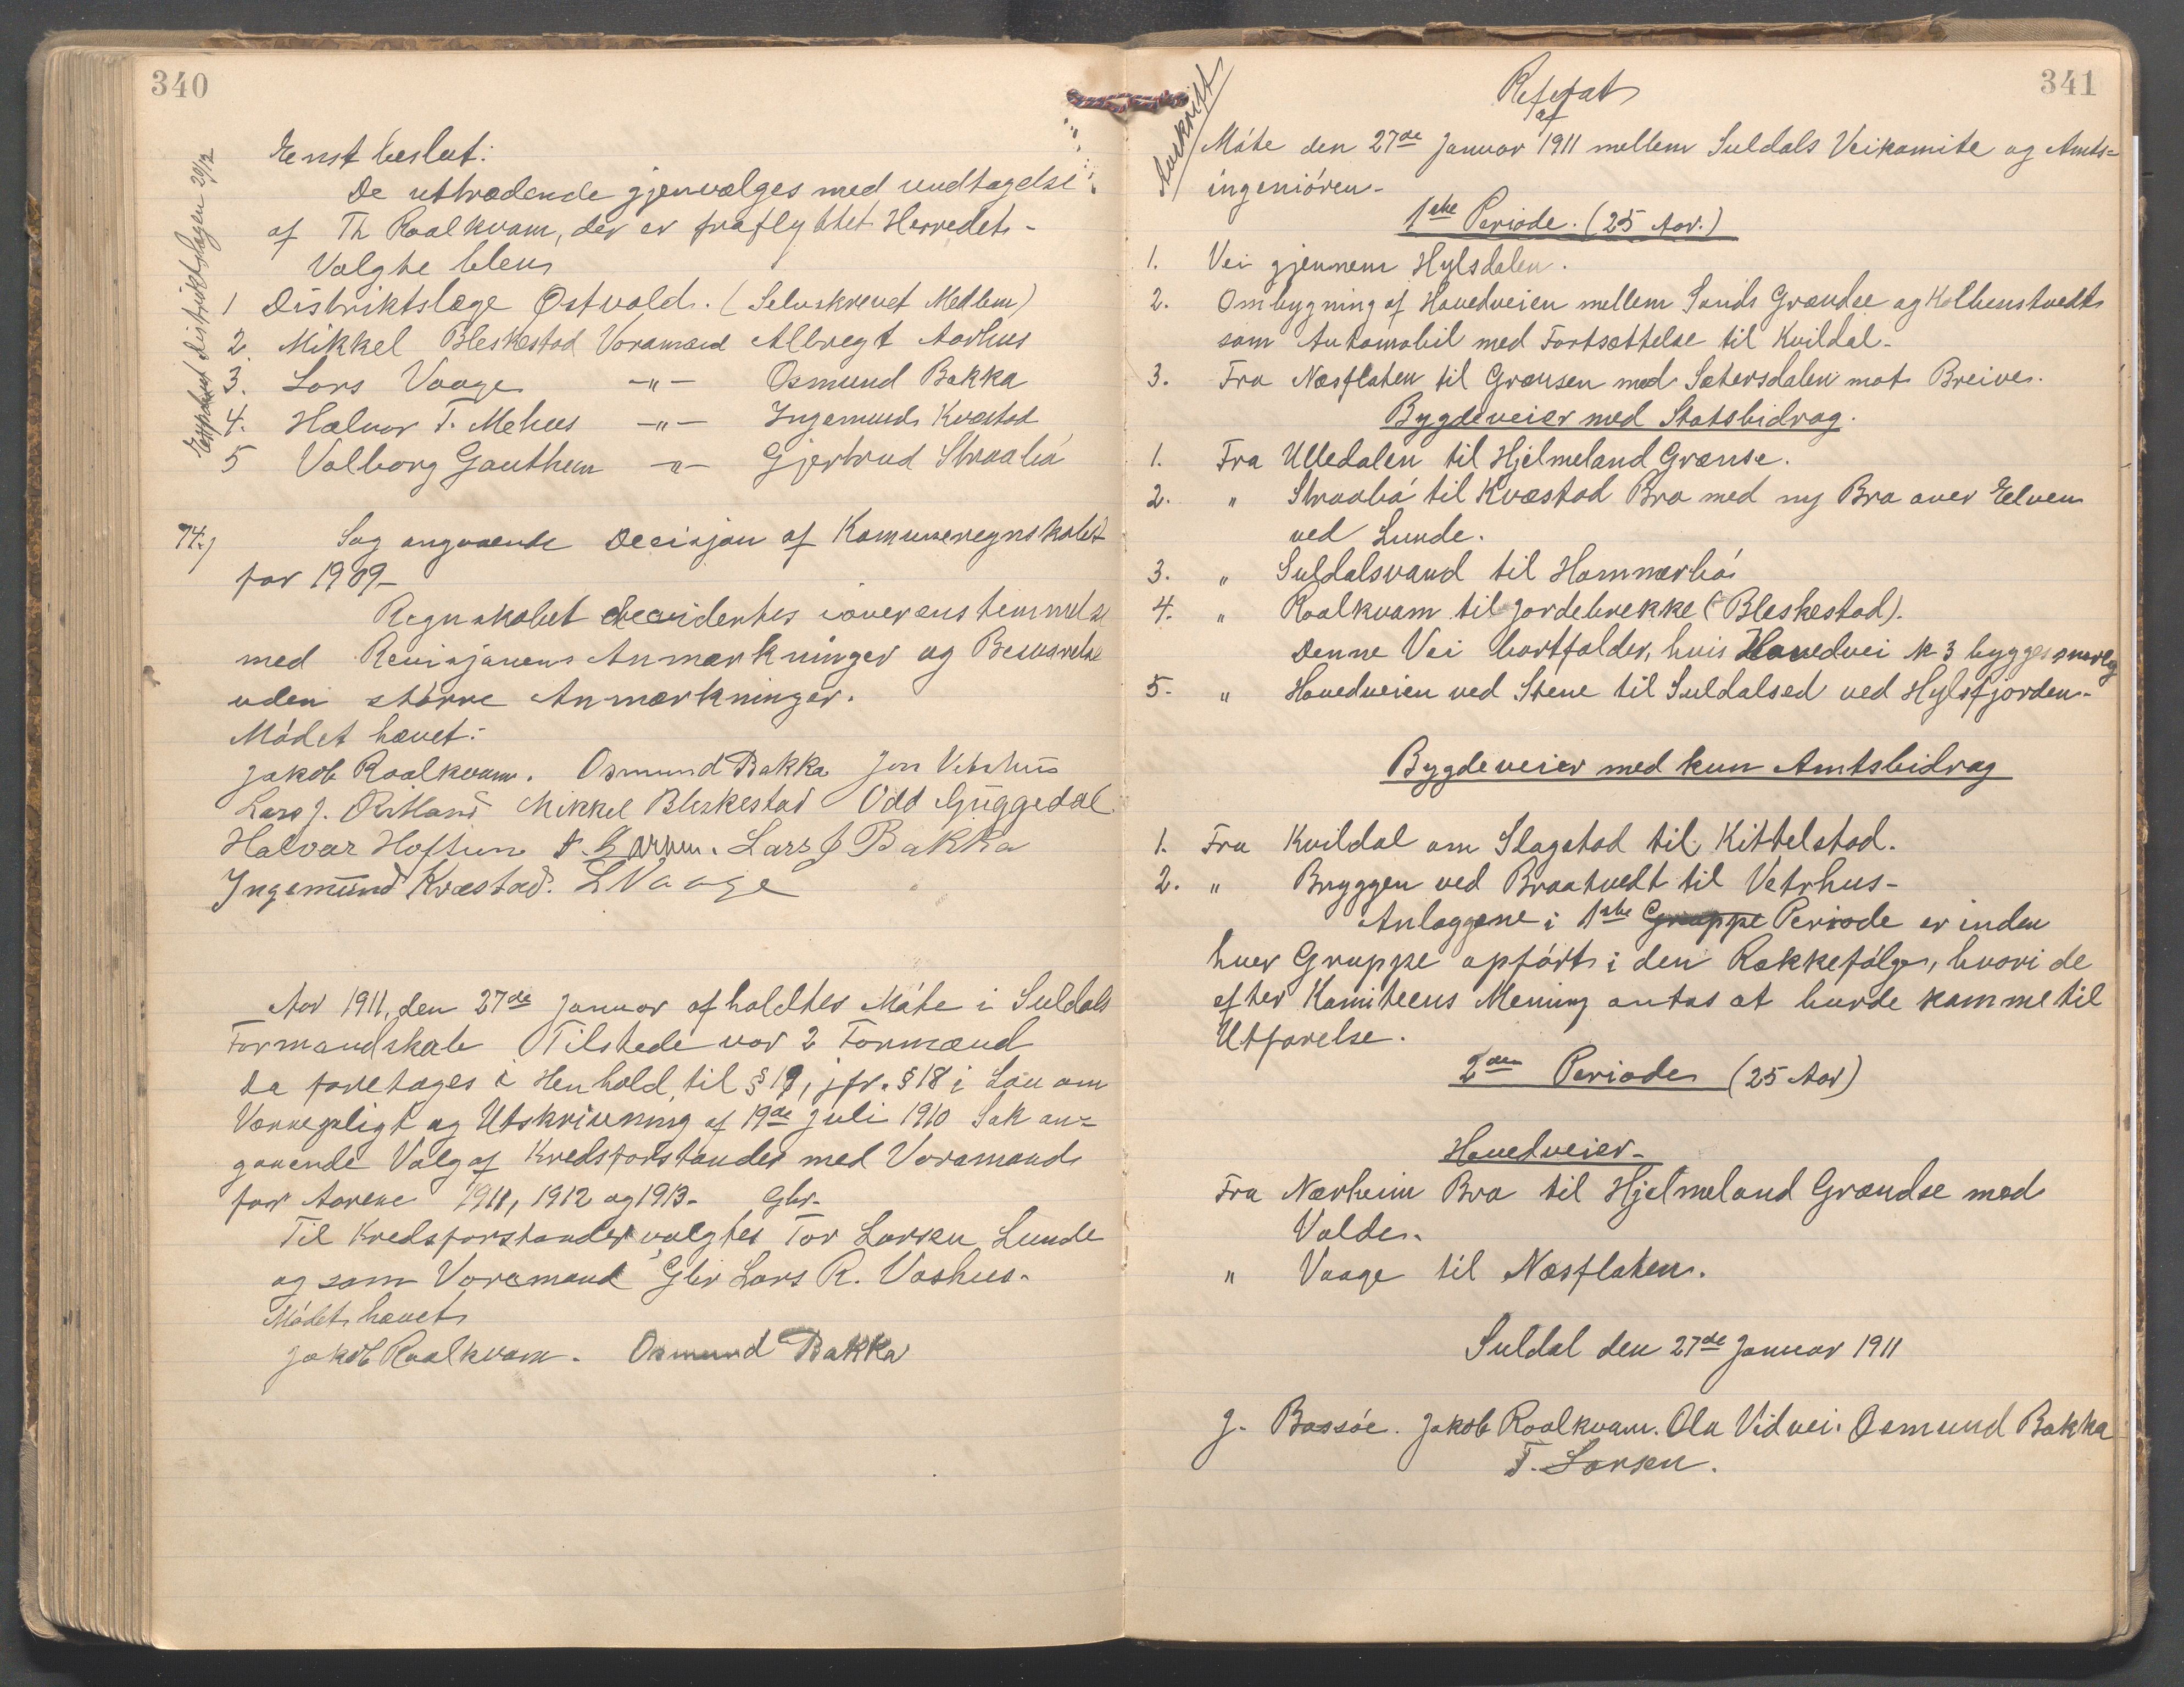 340
Enst beslut:
De uttrædende gjenvælges med undtagelse
af Th Roalkvam, der er fraflyttet Herredet-
Valgte blev
1 Distriktslæge Østvold. (Selvskrevet Medlem)
2. Mikkel Bleskestad Varamand Albregt Aarhus
3. Lars Vaage -"- Osmund Bakka
4. Halvor T. Mehus -"- Ingemund Kvæstad
5 Valborg Gauthun -"- Gjertrud Straabø
Exspedert Distriktslægen 20/12
74.) Sag angaaende Decisjon af Kommuneregnskabet
for 1909-
Regnskabet decidertes i overenstemmelse
med Revisjonens Anmærkninger og Besvarelse
uden større Anmærkninger.
Mødet hævet:
Jakob Roalkvam. Osmund Bakka Jon Vetrhus
Lars J. Ritland Mikkel Bleskestad Odd Guggedal
Halvar Hoftun Lars J Bakka
Ingemund Kvæstad. L Vaage
Aar 1911, den 27de Januar afholdtes Møte i Suldals
Formandskab Tilstede var 2 Formænd
Da foretages i Henhold til § 19, jfr. § 18 i Lov om
Værnepligt og Utskrivning af 19de Juli 1910 Sak an-
gaaende Valg af Kredsforstander med Varamand
for Aarene 1911, 1912 og 1913- Gbr-
Til Kredsforstander valgtes Tor Larsen Lunde
og som Varamand Gbr Lars R. Vashus-
Mødet hævet
Jakob Roalkvam. Osmund Bakka
341
Avskrift
Referat
af
Møte den 27de Januar 1911 mellem Suldals Veikomite og Amts-
ingeniøren-
1ste Periode. (25 Aar.)
1. Vei gjennem Hylsdalen.
2. Ombygning af Hovedveien mellem Sands Grændse og Kolbenstvedt
som Automobil med Fortsættelse til Kvildal-
3. Fra Næsflaten til Grænsen med Sætersdalen mot Breive.
Bygdeveier med Statsbidrag.
1. Fra Ulledalen til Hjelmeland Grænse.
2. " Straabø til Kvæstad Bro med ny Bro over Elven
ved Lunde.
3. " Suldalsvand til Hammerbø
4. " Roalkvam til Jordebrekke (Bleskestad).
Denne Vei bortfalder, hvis Hovedvei N 3 bygges snarlig
5- " Hovedveien ved Stene til Suldalseid ved Hylsfjorden-
Bygdeveier med kun Amtsbidrag
1. Fra Kvildal om Slagstad til Kittelstad.
2. " Bryggen ved Braatvedt til Vetrhus-
Anlæggene i 1ste Gruppe Periode er inden
hver Gruppe opført i den Rækkefølge, hvori de
efter Komiteens Mening antas at burde komme til
Utførelse.
2den Periode (25 Aar)
Hovedveier-
Fra Nærheim Bro til Hjelmeland Grændse mod
Valde.
" Vaage til Næsflaten.
Suldal den 27de Januar 1911
J. Bassøe. Jakob Roalkvam. Ola Vidvei. Osmund Bakka
T. Larsen.